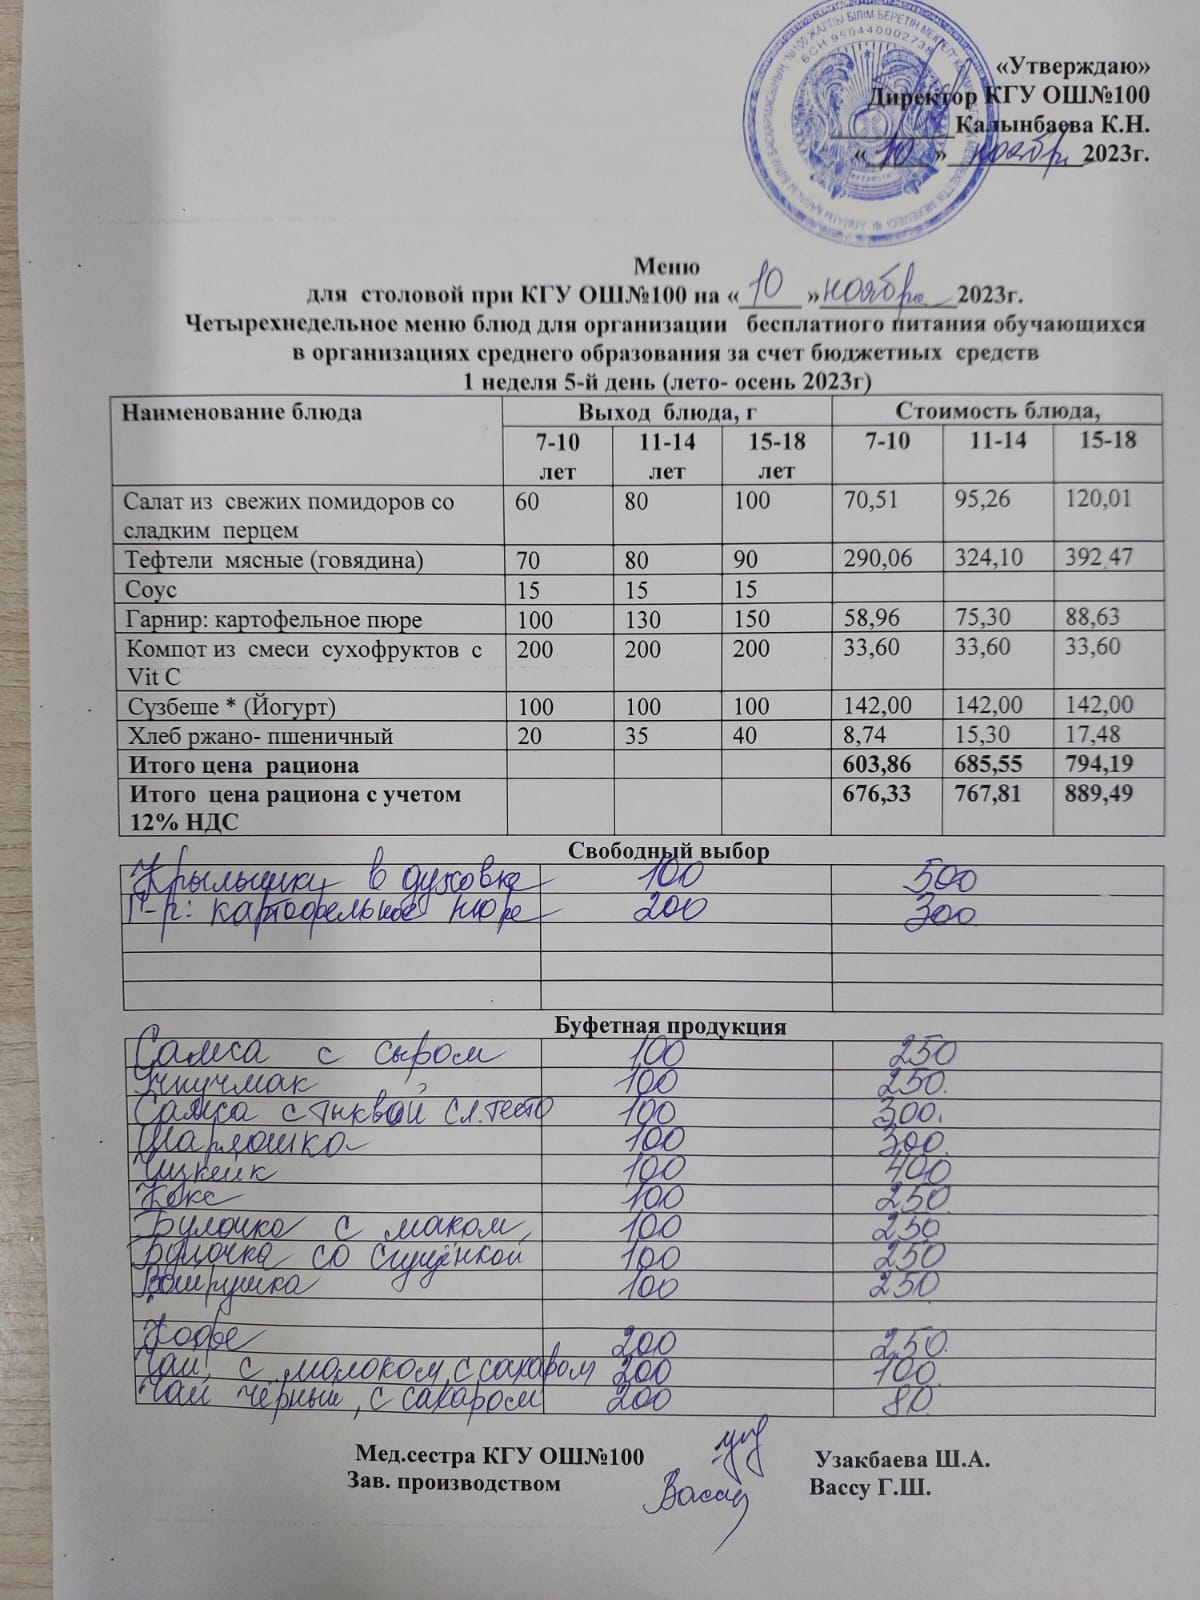 БСН 990440002738
«Утверждаю»
Директор КГУ ОШ№100
Калынбаева К.Н.
« 10 » ноября 2023г.
Меню
для столовой при КГУ ОШ№100 на « 10 » ноября 2023г.
Четырехнедельное меню блюд для организации бесплатного питания обучающихся
в организациях среднего образования за счет бюджетных средств
1 неделя 5-й день (лето- осень 2023г)
Наименование блюда Выход блюда, г Стоимость блюда,
7-10 лет 11-14 лет 15-18 лет 7-10 11-14 15-18
Салат из свежих помидоров со
сладким перцем 60 80 100 70,51 95,26 120,01
Тефтели мясные (говядина) 70 80 90 290,06 324,10 392,47
Соус 15 15 15
Гарнир: картофельное пюре 100 130 150 58,96 75,30 88,63
Компот из смеси сухофруктов с
Vit C 200 200 200 33,60 33,60 33,60
Сүзбеше * (Йогурт) 100 100 100 142,00 142,00 142,00
Хлеб ржано- пшеничный 20 35 40 8,74 15,30 17,48
Итого цена рациона 603,86 685,55 794,19
Итого цена рациона с учетом
12% НДС 676,33 767,81 889,49
Свободный выбор
Крылышки в духовке 100 500
Г-р: картофельное пюре 200 300
Буфетная продукция
Самса с сыром 100 250
Учпучмак 100 250.
Самса с тыквой сл.тесто 100 300.
Шарлошка 100 300.
Чизкейк 100 400
Кекс 100 250.
Булочка с маком, 100 250
Булочка со сгущёнкой 100 250
Ватрушка 100 250
Кофе 200 250.
Чай, с молоком, с сахаром 200 100.
Чай чёрный, с сахаром 200 80.
Мед.сестра КГУ ОШ№100 Узакбаева Ш.А.
Зав. производством Вассу Вассу Г.Ш.